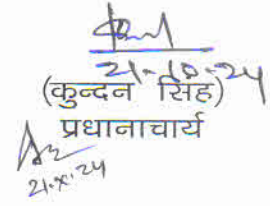 21-10-24
(कुन्दन सिंह)
प्रधानाचार्य
21.X.24